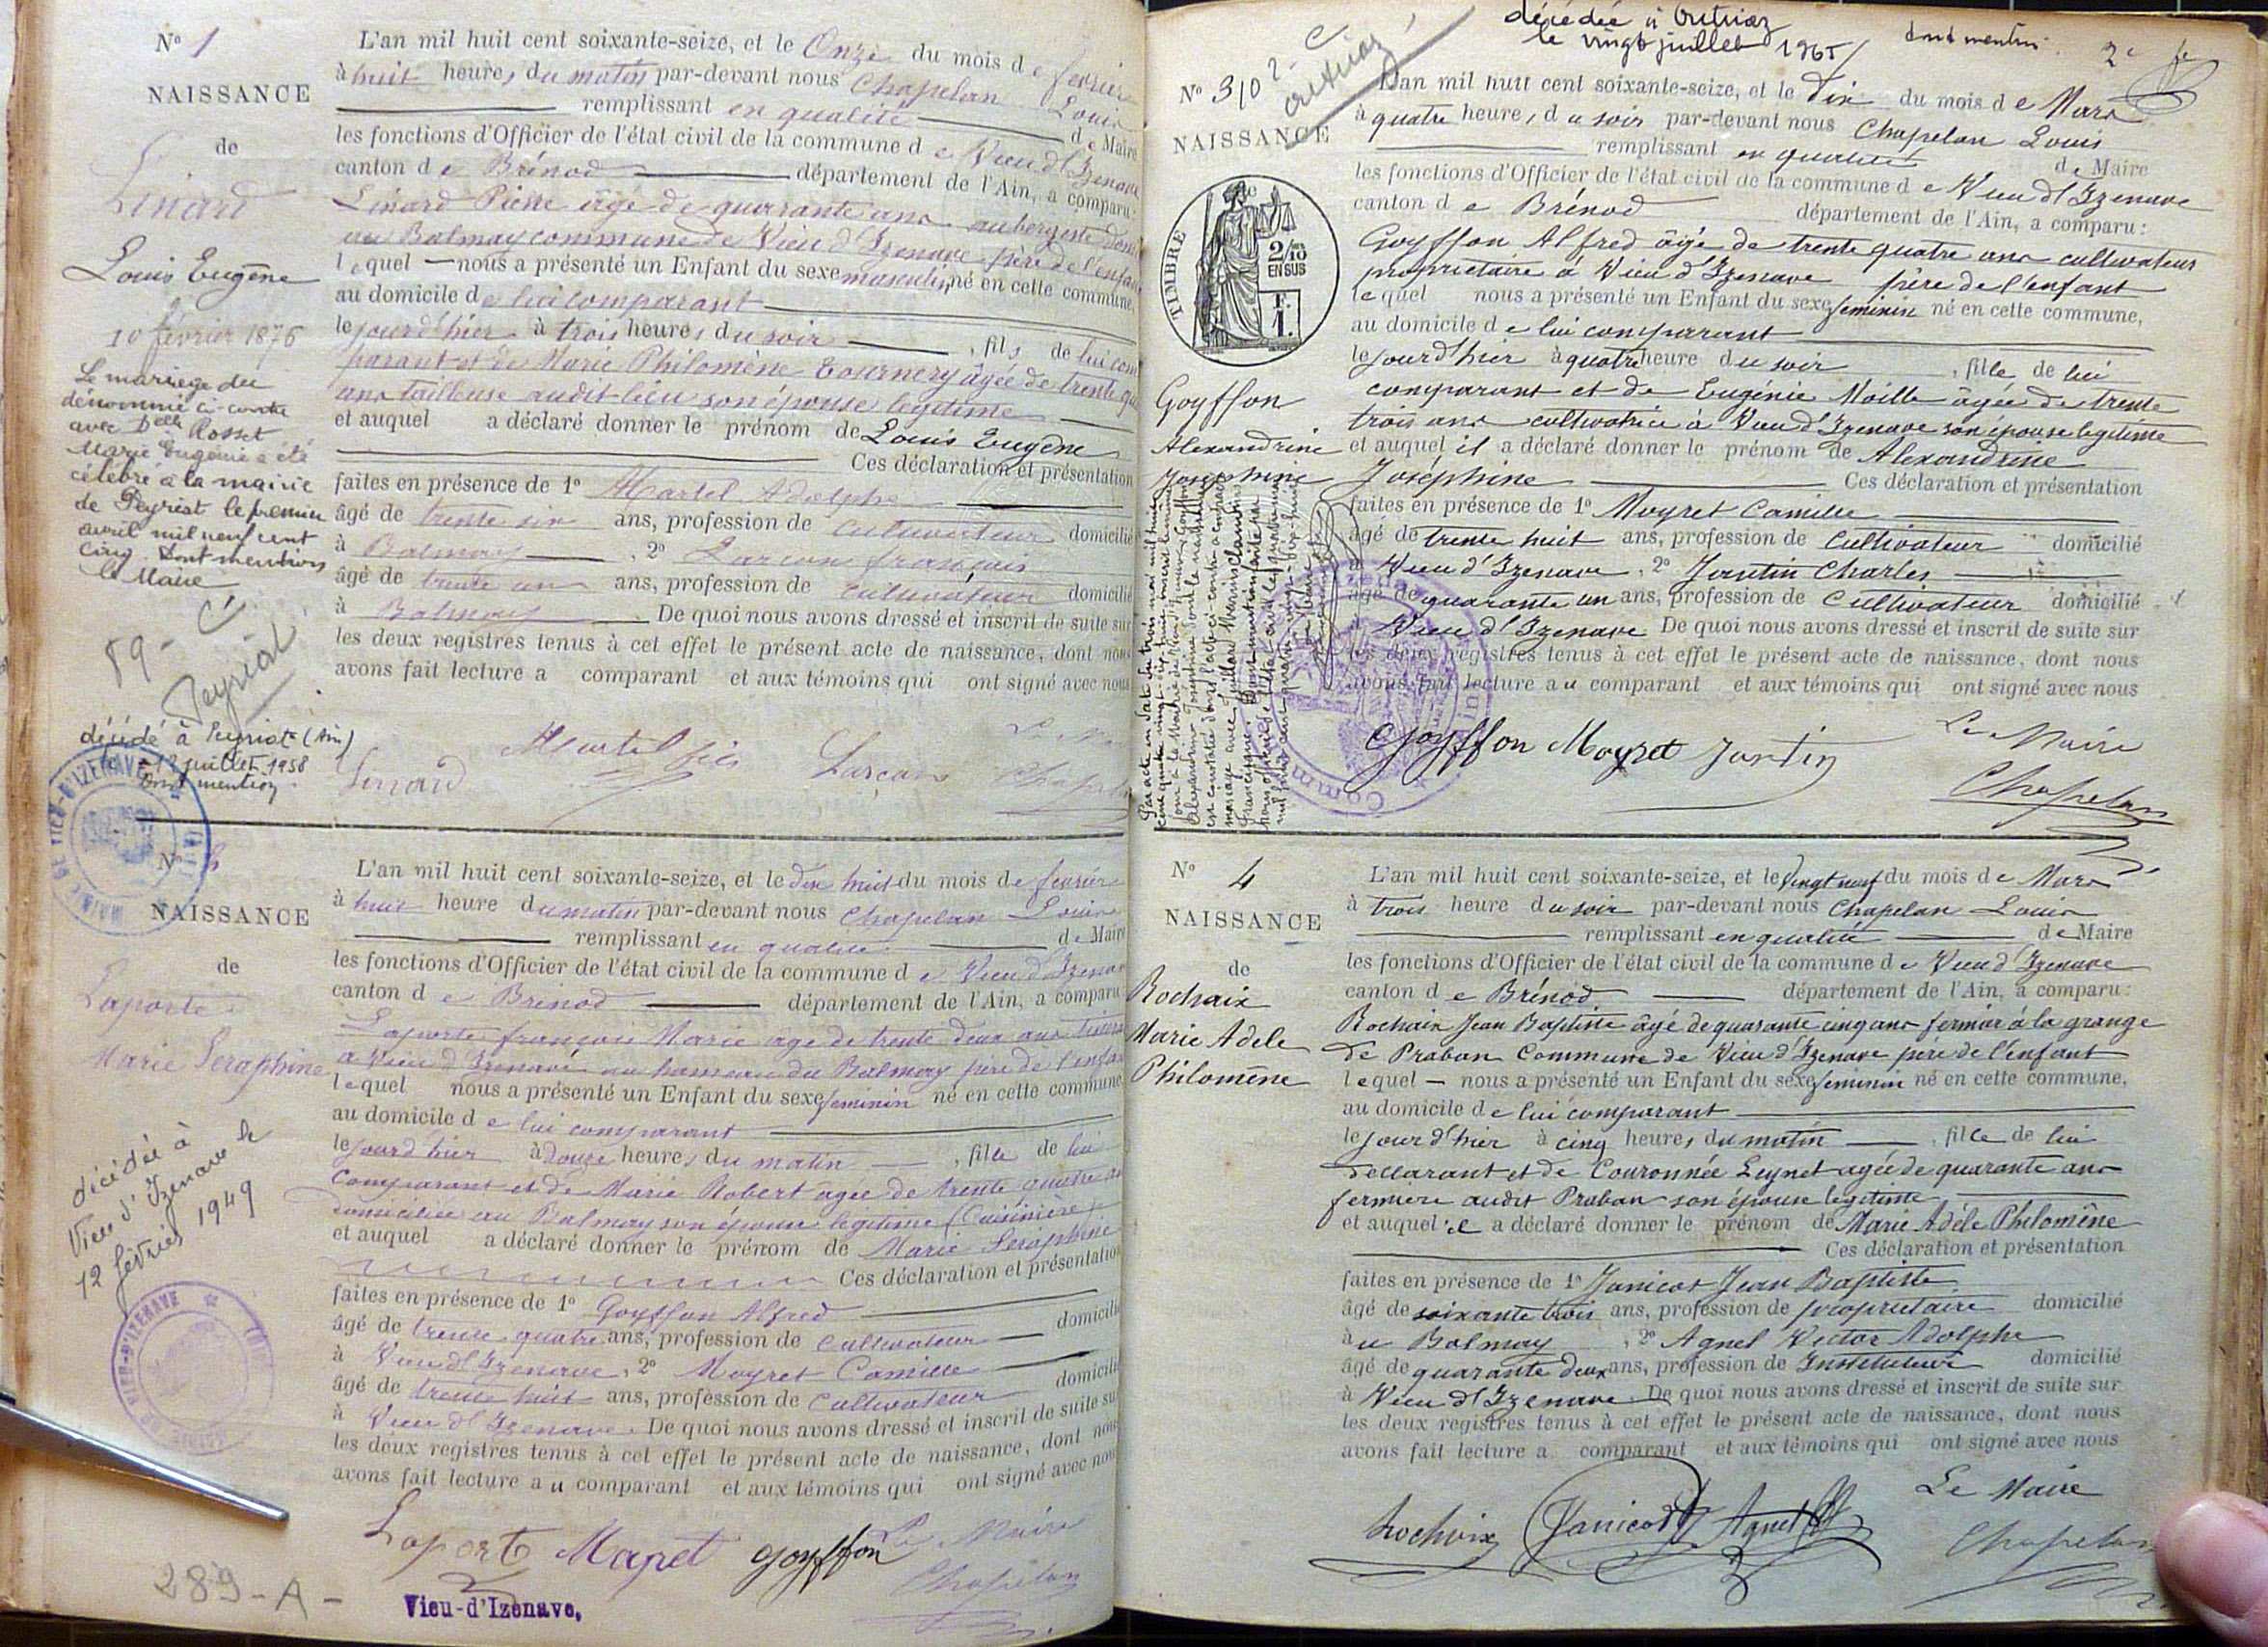 N° 1
NAISSANCE
de
Linard
Louis Eugène
10 février 1876
Le mariage du
dénommé ci-contre
avec Delle Rosset
Marie Eugénie a été
célébré à la mairie
de Peyriat le premier
avril mil neuf cent
cinq. Dont mention
le Maire
89 -
Peyriat
décédé à Peyriat (Ain)
juillet 1958
Dont mention
L'an mil huit cent soixante-seize, et le Onze du mois de fevrier
à huit heures du matin par-devant nous Chapelan Louis
remplissant en qualité de Maire
les fonctions d'Officier de l'état civil de la commune de Vieu d'Izenave
canton de Brénod département de l'Ain, a comparu:
Linard Pierre âgé de quarante ans aubergiste
au Balmay commune de Vieu d'Izenave père de l'enfant
lequel nous a présenté un Enfant du sexe masculin, né en cette commune,
au domicile de lui comparant
le jourd'hier à trois heures du soir, fils de lui com
parant et de Marie Philomène Tournery âgée de trente
ans tailleuse audit-lieu son épouse legitime
et auquel a déclaré donner le prénom de Louis Eugène
Ces déclaration et présentation
faites en présence de 1° Martel Adolphe
âgé de trente six ans, profession de cultivateur domicilié
à Balmay, 2° Larcon françois
âgé de trente un ans, profession de cultivateur domicilié
à Balmay De quoi nous avons dressé et inscrit de suite sur
les deux registres tenus à cet effet le présent acte de naissance, dont nous
avons fait lecture a comparant et aux témoins qui ont signé avec nous
Linard Martel Larcon
N°
NAISSANCE
de
Laporte
Marie Seraphine
décédée à
Vieu d'Izenave le
12 février 1949
MAIRIE DE VIEU-D'IZENAVE
L'an mil huit cent soixante-seize, et le dix huit du mois de fevrier
à huit heure du matin par-devant nous Chapelan Louis
remplissant en qualité de Maire
les fonctions d'Officier de l'état civil de la commune de Vieu d'Izenave
canton de Brénod département de l'Ain, a comparu
Laporte françois Marie age de trente deux ans
a Vieu d'Izenave au hameau du Balmay père de l'enfant
lequel nous a présenté un Enfant du sexe feminin né en cette commune
au domicile de lui comparant
le jourd'hier à douze heures du matin, fille de lui
Comparant et de Marie Robert agée de trente quatre ans
domiciliée au Balmay son épouse legitime (Cuisinière)
et auquel a déclaré donner le prénom de Marie Seraphine
Ces déclaration et présentation
faites en présence de 1° Goyffon Alfred
âgé de trente quatre ans, profession de cultivateur domicilié
à Vieu d'Izenave, 2° Moyret Camille
âgé de trente huit ans, profession de cultivateur domicilié
à Vieu d'Izenave. De quoi nous avons dressé et inscrit de suite sur
les deux registres tenus à cet effet le présent acte de naissance, dont nous
avons fait lecture au comparant et aux témoins qui ont signé avec nous
Laporte Moyret Goyffon Le Maire
Chapelan
289-A-
Vieu-d'Izenave,
décédée à Outriaz
le vingt juillet 1965 dont mention
N° 3
NAISSANCE
TIMBRE
2/10
EN SUS
F.
1.
Goyffon
Alexandrine
Joséphine
L'an mil huit cent soixante-seize, et le dix du mois de Mars
à quatre heures du soir par-devant nous Chapelan Louis
remplissant en qualité de Maire
les fonctions d'Officier de l'état civil de la commune de Vieu d'Izenave
canton de Brénod département de l'Ain, a comparu:
Goyffon Alfred âgé de trente quatre ans cultivateur
propriétaire à Vieu d'Izenave père de l'enfant
lequel nous a présenté un Enfant du sexe feminin né en cette commune,
au domicile de lui comparant
le jourd'hier à quatre heure du soir, fille de lui
comparant et de Eugénie Moille âgée de trente
trois ans cultivatrice à Vieu d'Izenave son épouse legitime
et auquel il a déclaré donner le prénom de Alexandrine
Joséphine Ces déclaration et présentation
faites en présence de 1° Moyret Camille
âgé de trente huit ans, profession de Cultivateur domicilié
à Vieu d'Izenave, 2° Jantin Charles
âgé de quarante un ans, profession de Cultivateur domicilié
à Vieu d'Izenave De quoi nous avons dressé et inscrit de suite sur
les deux registres tenus à cet effet le présent acte de naissance, dont nous
avons fait lecture au comparant et aux témoins qui ont signé avec nous
Goyffon Moyret Jantin
Le Maire
Chapelan
N° 4
NAISSANCE
de
Rochaix
Marie Adele
Philomène
L'an mil huit cent soixante-seize, et le vingt neuf du mois de Mars
à trois heure du soir par-devant nous Chapelan Louis
remplissant en qualité de Maire
les fonctions d'Officier de l'état civil de la commune de Vieu d'Izenave
canton de Brénod département de l'Ain, a comparu:
Rochaix Jean Baptiste âgé de quarante cinq ans fermier à la grange
de Praban Commune de Vieu d'Izenave père de l'enfant
lequel nous a présenté un Enfant du sexe feminin né en cette commune,
au domicile de lui comparant
le jour d'hier à cinq heures du matin, fille de lui
déclarant et de Couronnée Leynet agée de quarante ans
fermiere audit Praban son épouse legitime
et auquel il a déclaré donner le prénom de Marie Adéle Philomène
Ces déclaration et présentation
faites en présence de 1° Janicot Jean Baptiste
âgé de soixante trois ans, profession de propriétaire domicilié
au Balmay, 2° Agnel Victor Adolphe
âgé de quarante deux ans, profession de Instituteur domicilié
à Vieu d'Izenave. De quoi nous avons dressé et inscrit de suite sur
les deux registres tenus à cet effet le présent acte de naissance, dont nous
avons fait lecture a comparant et aux témoins qui ont signé avec nous
Rochaix Janicot Agnel
Le Maire
Chapelan